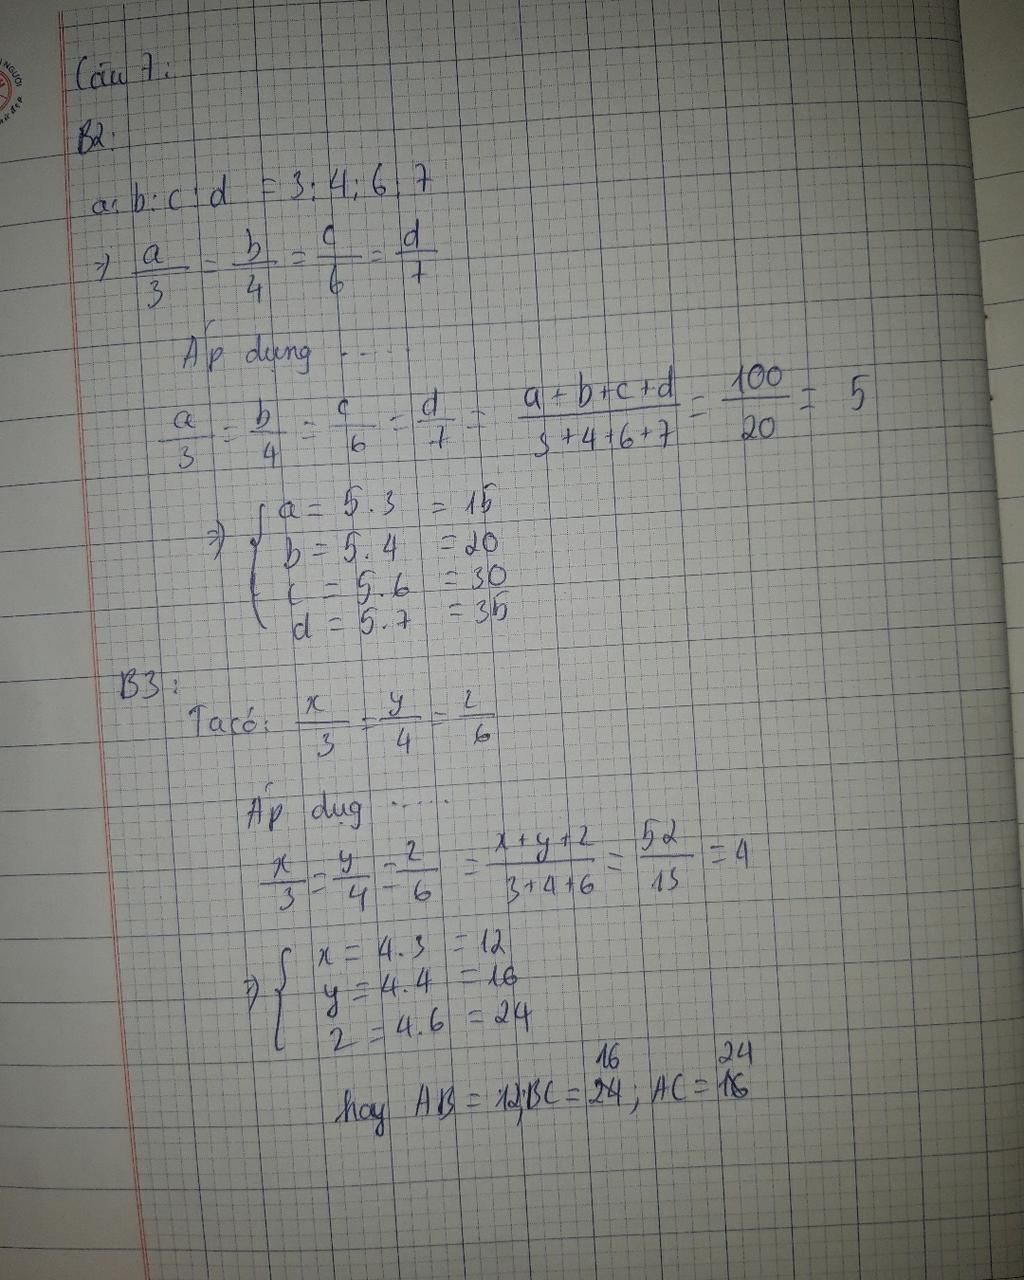 Câu 7:
B2:
a: b: c: d = 3; 4; 6; 7
=> a/3 = b/4 = c/6 = d/7
Áp dụng .....
a/3 = b/4 = c/6 = d/7 = a+b+c+d/3+4+6+7 = 100/20 = 5
=> { a = 5.3 = 15
b = 5.4 = 20
c = 5.6 = 30
d = 5.7 = 35
B3:
Ta có: x/3 = y/4 = z/6
Áp dụg .....
x/3 = y/4 = z/6 = x+y+z/3+4+6 = 52/13 = 4
=> { x = 4.3 = 12
y = 4.4 = 16
z = 4.6 = 24
16 24
hay AB = 12; BC = 24; AC = 16